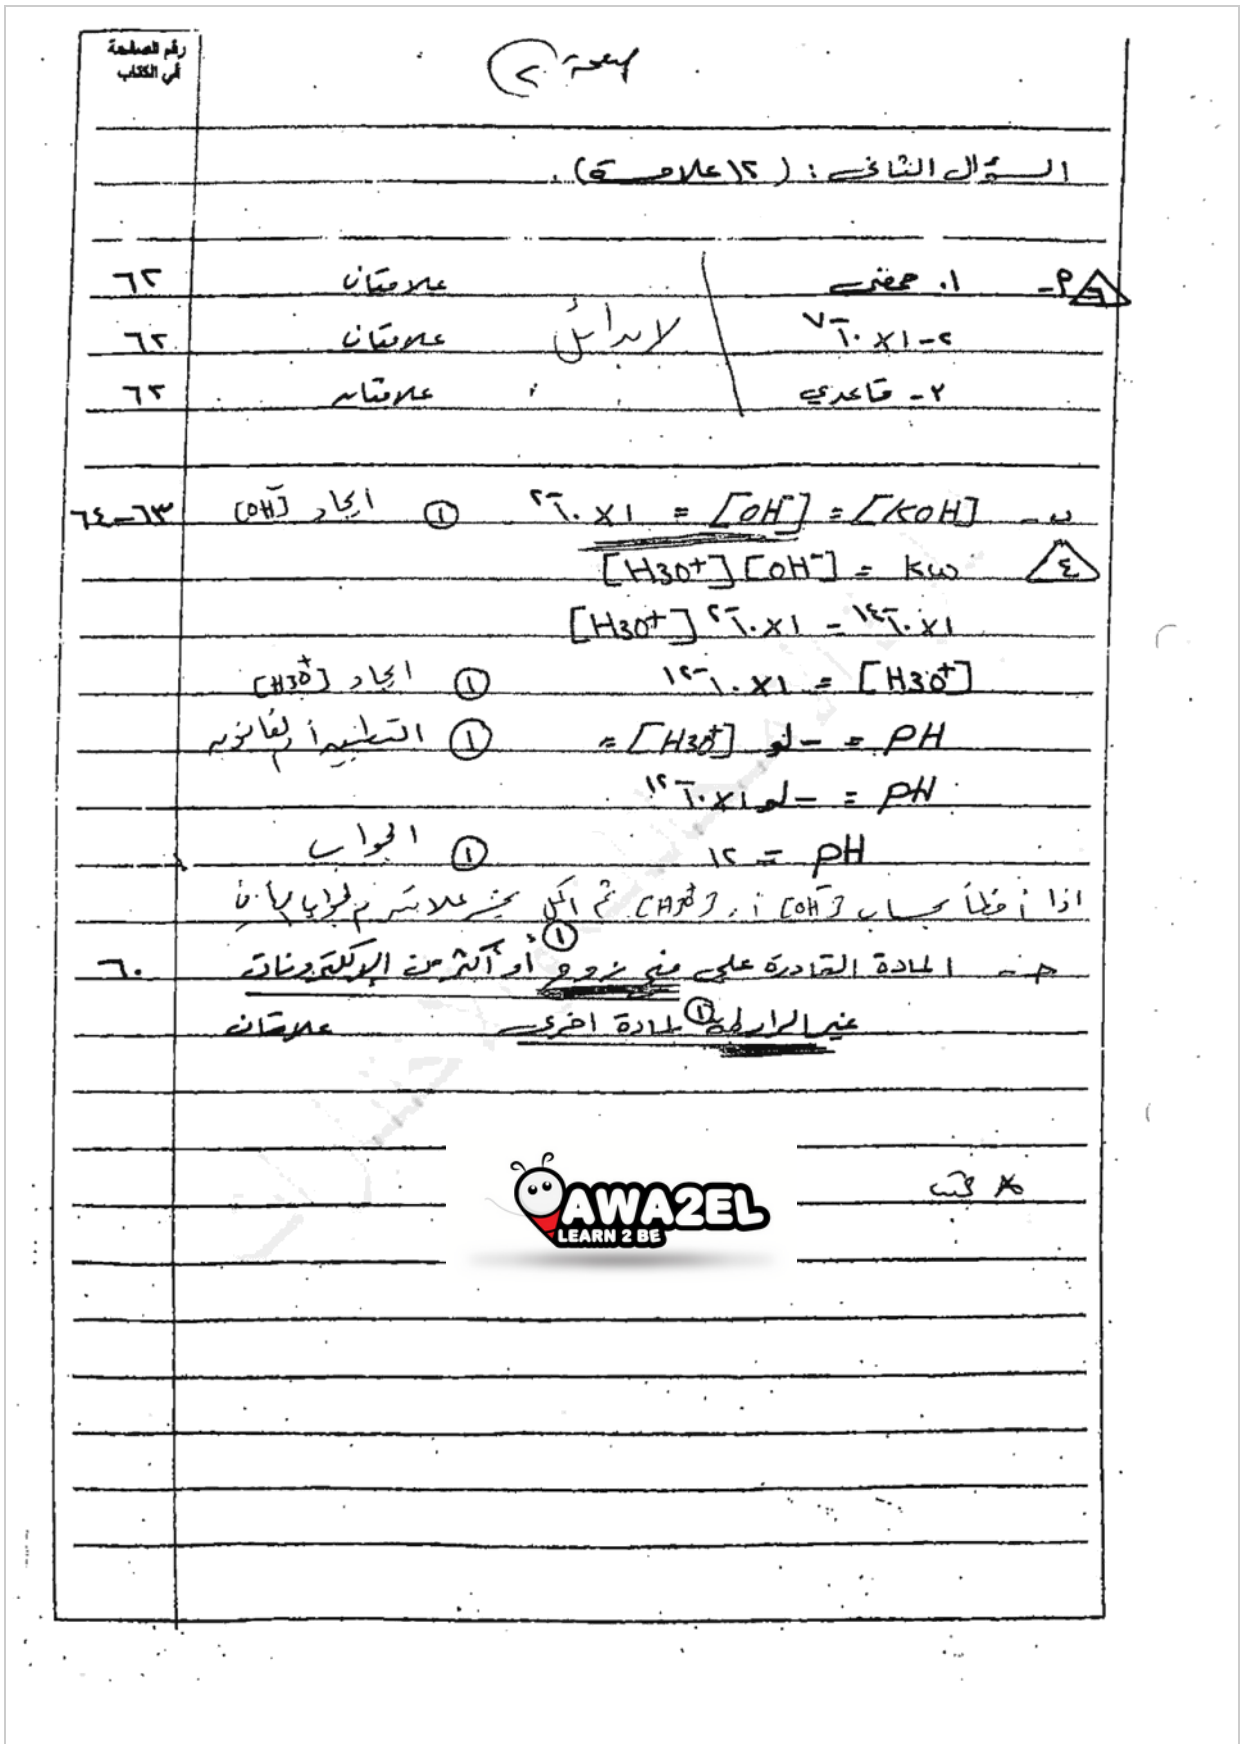 رقم الصفحة
في الكتاب
صفحة ٢
السؤال الثاني : ( ١٢ علامة ) .
٦ م- ١. حمضي علامتان ٦٢
٢- ١×١٠⁻٧ لا بدائل علامتان ٦٢
٣- قاعدي علامتان ٦٢
ب- [KOH] = [OH⁻] = ١×١٠⁻٢ ① ايجاد [OH⁻] ٦٣-٦٤
٤ Kw = [H3O⁺][OH⁻]
١×١٠⁻١٤ = ١×١٠⁻٢ [H3O⁺]
[H3O⁺] = ١×١٠⁻١٢ ① ايجاد [H3O⁺]
PH = - لو [H3O⁺] = ① التطبيق أو القانون
PH = - لو ١×١٠⁻١٢
PH = ١٢ ① الجواب
اذا أخطأ بحساب [OH⁻] أو [H3O⁺] ثم أكمل يخسر علامته
جـ- المادة القادرة على منح زوج ① أو أكثر من الإلكترونات ٦٠
غير الرابطة ① لمادة اخرى علامتان
AWA2EL
LEARN 2 BE